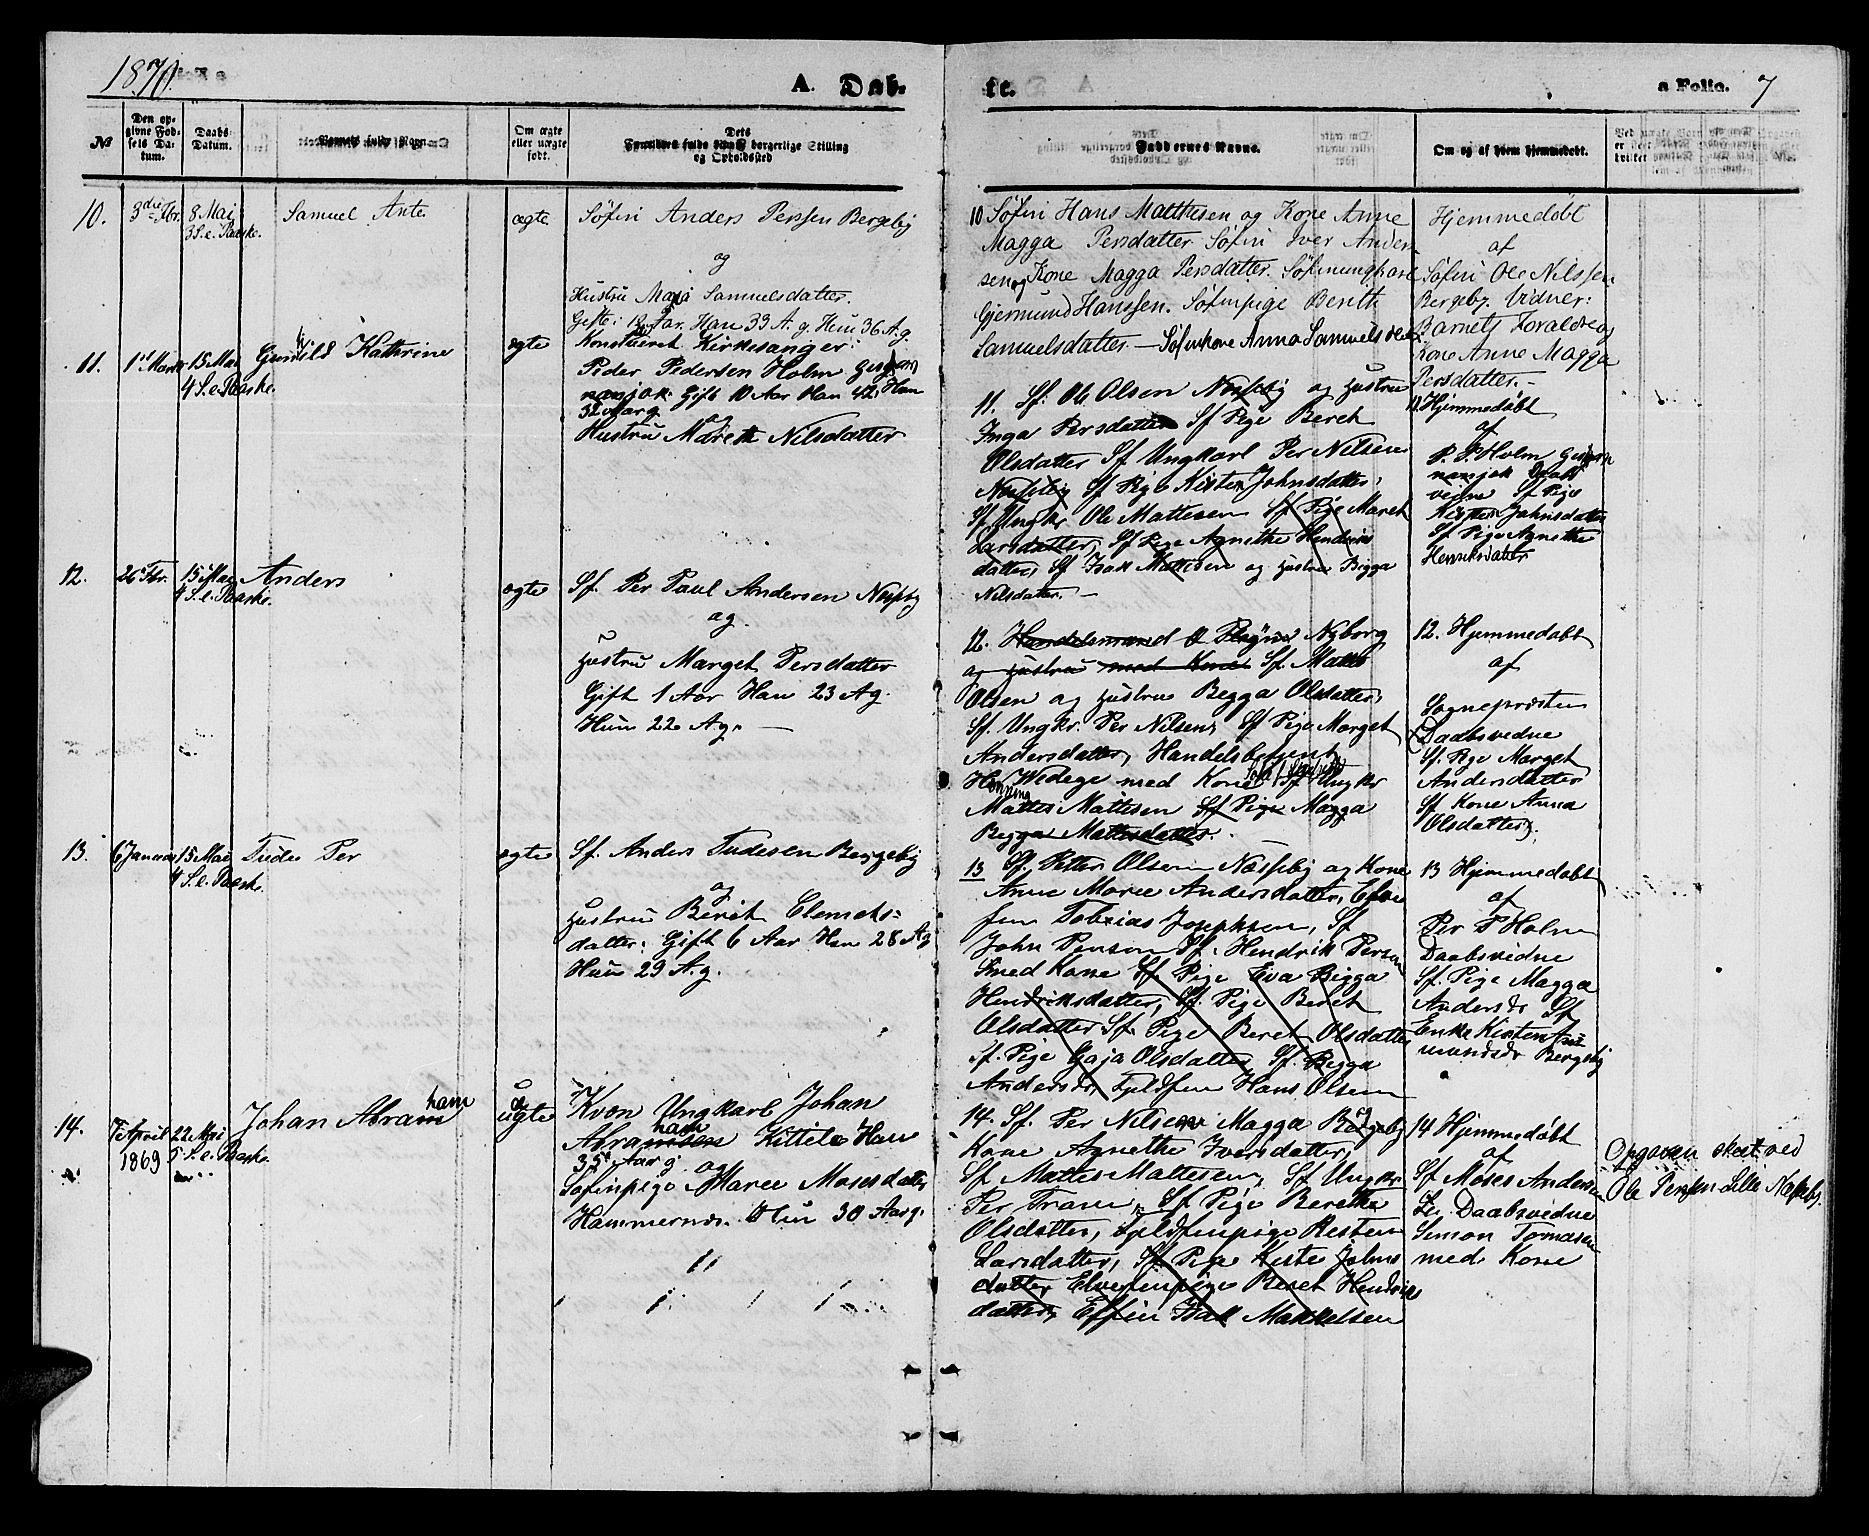 1870.
A. Dab-
te.
a Folio. 7
№
Den op-
givne Fød-
sels Da-
tum.
Daabs-
Datum.
Barnets fulde Navn.
Om ægte
eller uægte
født.
Dets
Forældres fulde Navn borgerlige Stilling
og Opholdssted
Faddernes Navne.
Om og af hvem hjemmedøbt.
10.
3die Fbr.
8 Mai
3 S. e. Paaske.
Samuel Ante
ægte
Søfin Anders Persen Bergeby
og
Hustru Maja Samuelsdatter.
Gifte: 12 Aar. Han 33 A. g. Hun 36 A. g.
10 Søfin Hans Mathesen og Kone Anne
Magga Persdatter Søfin Iver Ander-
sen og Kone Magga Persdatter. Søfinungkarl
Gjermund Hanssen. Søfinpige Berith
Samuelsdatter. — Søfinkone Anna Samuelsdatter
Hjemmedøbt
af
Søfin Ole Nilssen
Bergeby. Vidner:
Barnets Forældre og
Kone Anne Magga
Persdatter. -
11.
1ste Marts
15 Mai
4 S. e. Paaske.
Gunild Kathrine
ægte
Konstueret Kirkesanger:
Peder Pedersen Holm
nasjok. Gift 10 Aar Han 42, Hun
32 Aar g.
Hustru Mareth Nilsdatter
11. Sf. Ole Olsen Nesseby og Hustru
Inga Persdatter Sf Pige Beret
Olsdatter Sf Ungkarl Per Nilsen
Nesseby Sf Pige Kirsten Johnsdatter,
Sf Ungkr Ole Mattesen Sf Pige Maret
Larsdatter, Sf Pige Agnethe Hendriks
datter, Sf Isak Mattesen og Hustru Bigga
Nilsdatter. —
11. Hjemmedøbt
af
P. P. Holm
nasjok Daabs
vidne Sf Pige
Kirsten Johnsdatter
Sf Pige Agnethe
Henriksdatter
12.
26 Fbr.
15 Mai
4 S. e. Paaske.
Anders
ægte
Sf. Per Paul Andersen Nesseby
og.
Hustru Marget Persdatter
Gift 1 Aar Han 23 A g.
Hun 22 A g. —
12. Handelsmand Nyborg
og Hustru med Kone Sf. Mattis
Olsen og Hustru Begga Olsdatter,
Sf. Ungkr. Per Nilsen, Sf Pige Marget
Andersdatter, Handelsbetjent
Henning Wedege med Kone Sf Ungkr
Mattes Mattesen Sf Pige Magga
Begga Mattesdatter.
12. Hjemmedøbt
af
Sognepresten
(Daabsvidne
Sf. Pige Marget
Andersdatter
Sf. Kone Anna
Olsdatter).
13.
6 Januar
15 Mai
4 S. e. Paaske.
Tudes Per
ægte
Sf. Anders Tudesen Bergeby
og
Hustru Berit Clemets-
datter: Gift 6 Aar Han 28 A g
Hun 29 A. g.
13 Sf. Petter Olsen Næsseby og Kone
Anne Maree Andersdatter, Elve
fin Tobias Josephsen, Sf
John Persen Sf. Hendrik Persen
med Kone Sf Pige Eva Bigga
Hendriksdatter, Sf. Pige Beret
Olsdatter Sf. Pige Beret Olsdatter
Sf. Pige Gaja Olsdatter Sf. Bigga
Andersdr, Fjeldfin Hans Olsen
13 Hjemmedøbt
af
Per P Holm
Daabsvidne
Sf. Pige Magga
Andersdr Sf
Enke Kirsten
mundsdr Bergeby
14.
7 April
1869
22 Mai
5 S. e. Paaske.
Johan Abraham
uægte
Kvæn Ungkarl Johan
Abrahamsen Kittila Han
35 Aar g og
Søfinpige Maree Mosesdatter
Hammernæs. Hun 30 Aar g.
14. Sf. Per Nilsen Magga Bergeby
Kone Agnethe Iversdatter,
Sf Mattes Mattesen, Sf Ungkr
Per Trane, Sf Pige Berethe
Olsdatter, Fjeldfinpige Kirsten
Larsdatter, Sf Pige Kirste Johns
datter Elvefinpige Beret Hendriks
datter, Elffin Isak Mikkelsen
14 Hjemmedøbt
af
Sf Moses Andersen
Daabsvidne
Simon Tomasen
med Kone
Opgaven skeet ved
Ole Persen Lille Næsseby.